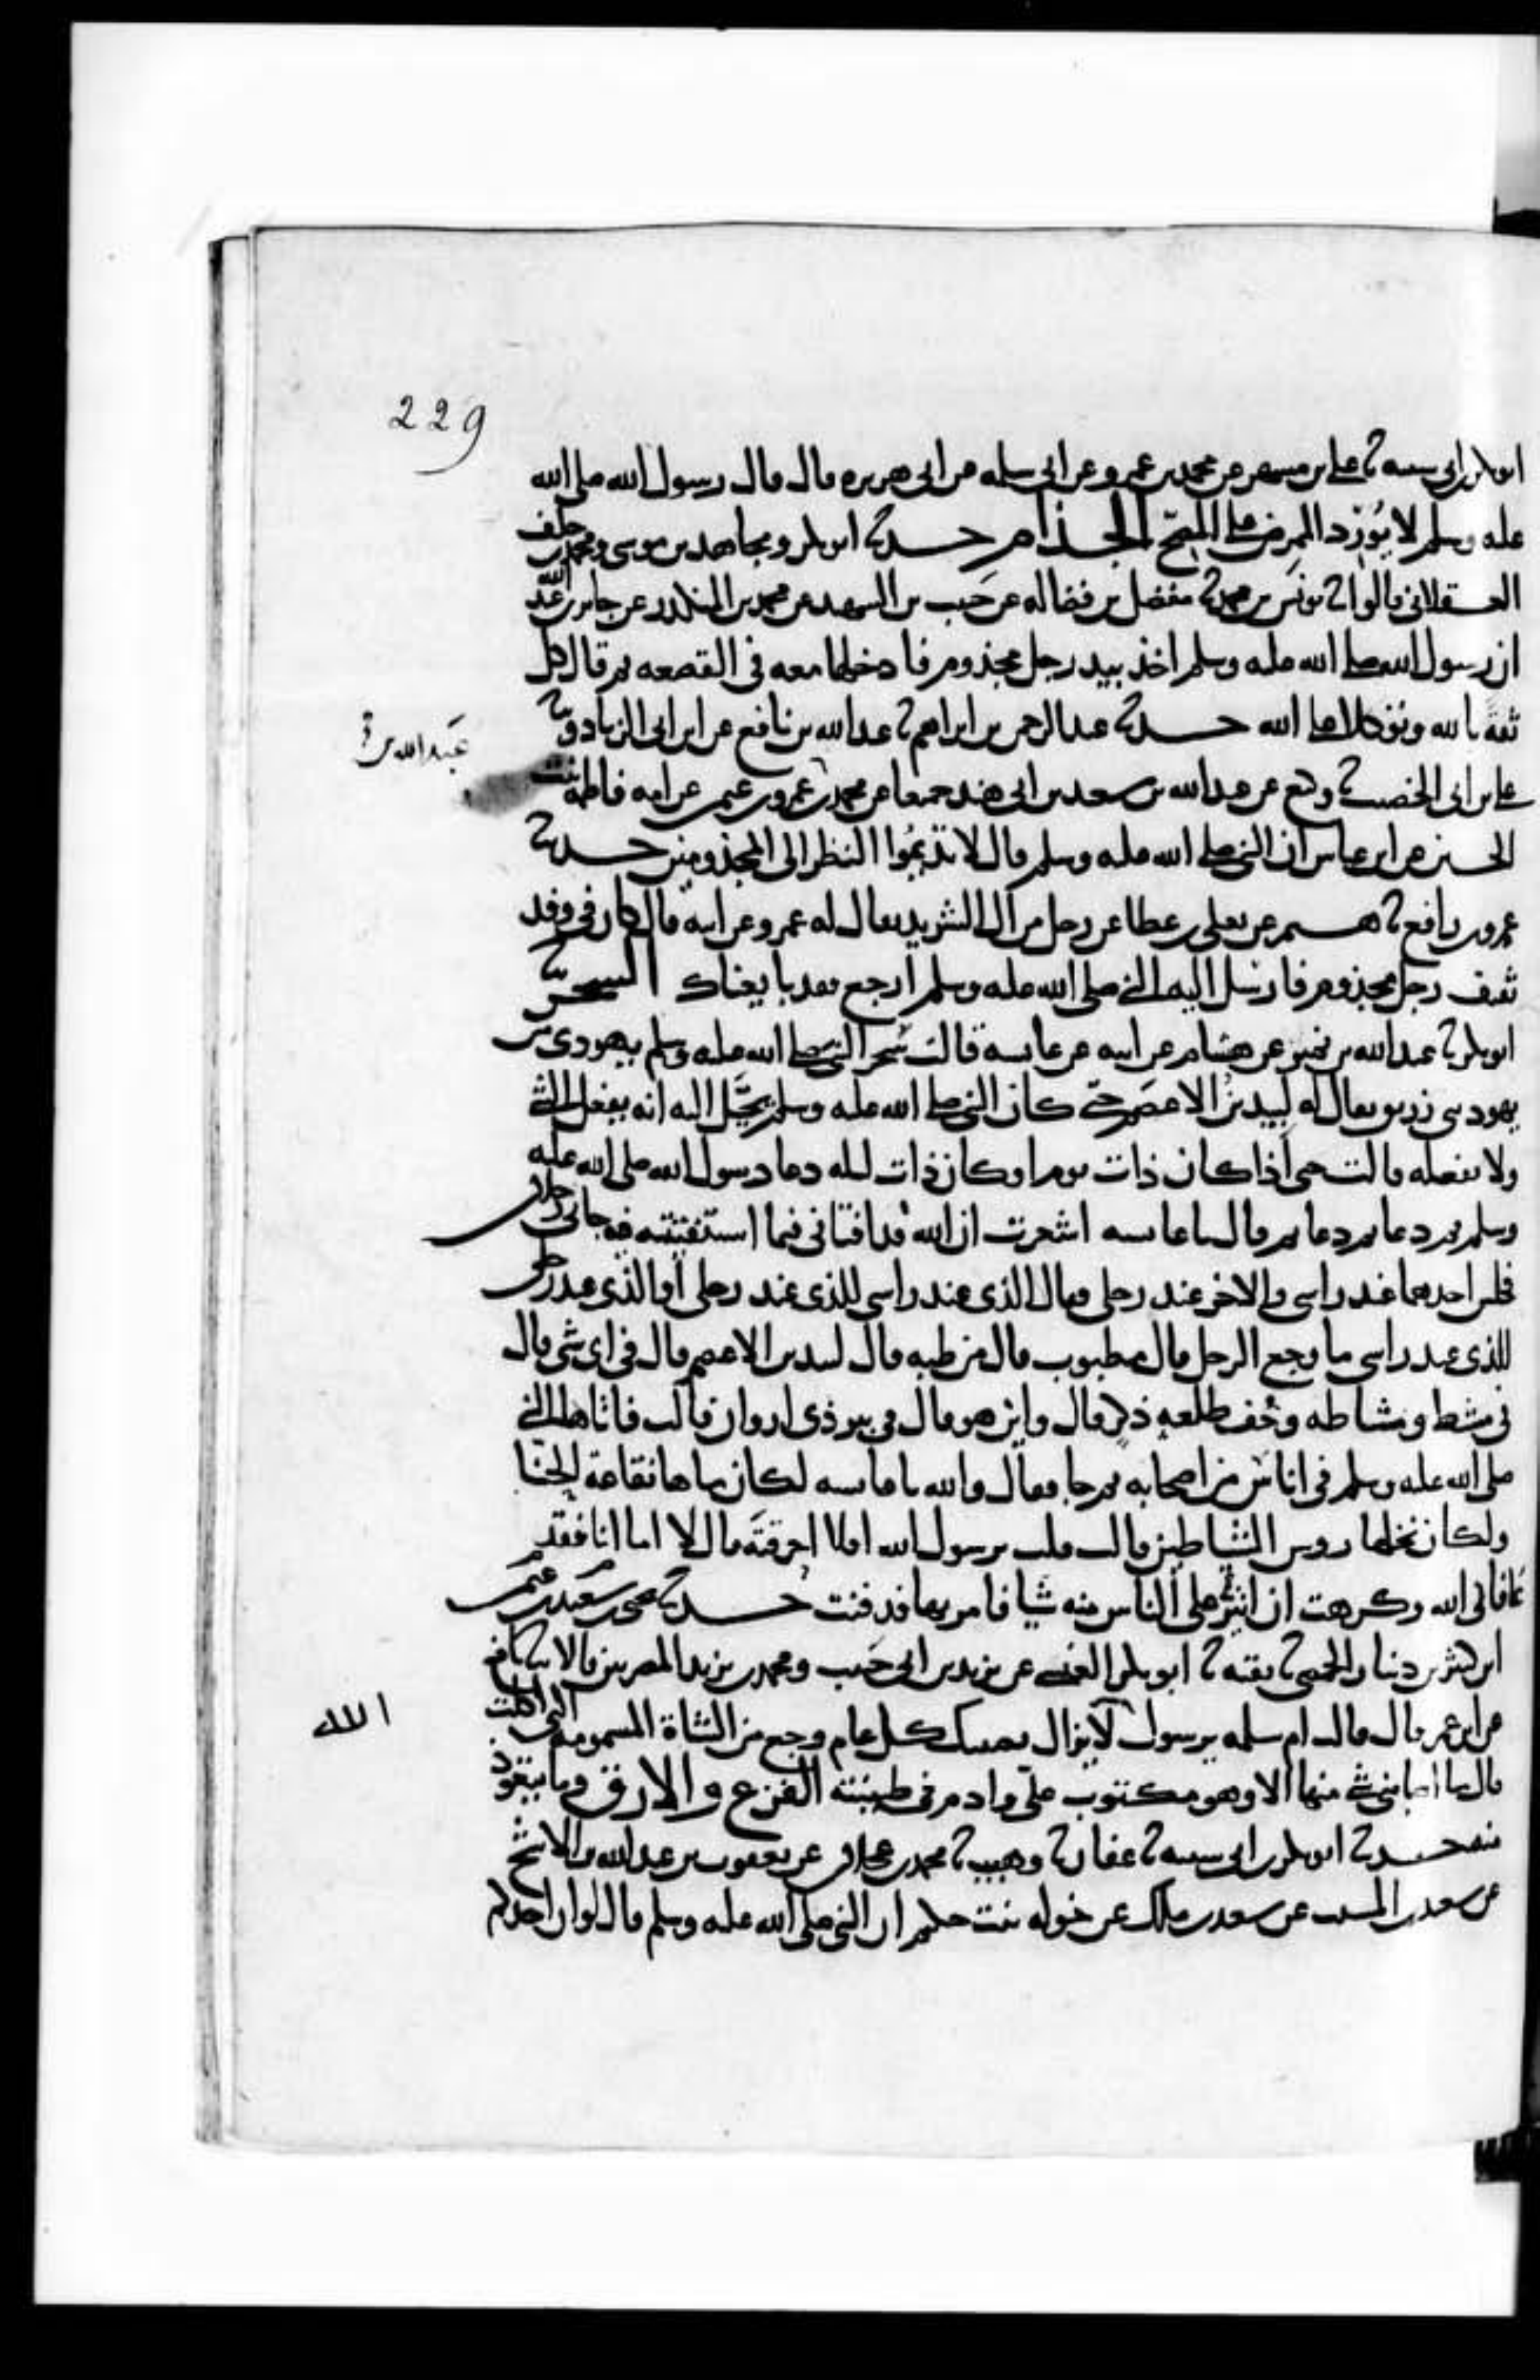 229
ابو بكر بن ابي شيبة ثنا علي بن مسهر عن محمد بن عمرو عن ابي سلمه عن ابي هريره قال قال رسول الله صلى الله
عليه وسلم لا يُورِد الممرض على المصِحّ الجذام حدثنا ابو بكر ومجاهد بن موسى ومحمد بن خلف
العسقلاني قالوا ثنا يونس بن محمد ثنا مفضل بن فضاله عن حَبيب بن الشهيد عن محمد بن المنكدر عن جابر بن عبد الله
ان رسول الله صلى الله عليه وسلم اخذ بيد رجل مجذوم فادخلها معه في القصعه ثم قال كل
ثقةً بالله وتوكلا على الله حدثنا عبد الرحمن بن ابراهيم ثنا عبد الله بن نافع عن ابن ابي الزناد وثنا
عبد الله بن
علي بن ابي الخصيب ثنا وكيع عن عبد الله بن سعيد بن ابي هند جميعا عن محمد بن عمرو بن عثمن عن امه فاطمة بنت
الحسين عن ابن عباس ان النبي صلى الله عليه وسلم قال لا تديموا النظر الى المجذومين حدثنا
عمرو بن رافع ثنا هشيم عن يعلى بن عطا عن رجل من ال الشريد يقال له عمرو عن ابيه قال كان في وفد
ثقيف رجل مجذوم فارسل اليه النبي صلى الله عليه وسلم ارجع فقد بايعناك السحر ثنا
ابو بكر ثنا عبد الله بن نمير عن هشام عن ابيه عن عايشه قالت سَحر النبي صلى الله عليه وسلم يهودي من
يهود بني زريق يقال له لبيد بنُ الاعصَم حتى كان النبي صلى الله عليه وسلم يخيَّل اليه انه يفعل الشي
ولا يفعله قالت حتى اذا كان ذات يوم او كان ذات ليله دعا رسول الله صلى الله عليه
وسلم ثم دعا ثم دعا ثم قال يا عايشه اشعرت ان الله قد افتاني فيما استفتيته فيه جاني رجلان
فجلس احدهما عند راسي والاخر عند رجلي فقال الذي عند راسي للذي عند رجلي او الذي عند رجلي
للذي عند راسي ما وجع الرجل قال مطبوب قال من طبه قال لبيد بن الاعصم قال في اي شي قال
في مشط ومشاطه وجُف طلعهِ ذكرٍ قال واين هو قال في بير ذي اروان قالت فاتاها النبي
صلى الله عليه وسلم في اناس من اصحابه ثم جا فقال والله يا عايشه لكان ماها نقاعة الحنا
ولكان نخلها روس الشياطين قالت قلت يرسول الله افلا احرقتَه قال لا اما انا فقد
عافاني الله وكرهت ان اثير على الناس منه شيا فامر بها فدفنت حدثنا يحيى بن عثمن بن سعيد
ابن كثير بن دينار الحمصي ثنا بقيه ثنا ابو بكر العنسي عن يزيد بن ابي حَبيب ومحمد بن يزيد المصريين قالا ثنا نافع
عن ابن عمر قال قالت ام سلمه يرسول لا يزال يصيبك كل عام وجع من الشاة المسمومة التي اكلت
الله
قال ما اصابني شي منها الا وهو مكتوب عليّ وادم في طينته الفزع والارق وما يتعوذ
منه حدثنا ابو بكر بن ابي شيبه ثنا عفان ثنا وهيب ثنا محمد بن عجلان عن يعقوب بن عبد الله بن الاشج
عن سعيد بن المسيب عن سعد بن ملك عن خوله بنت حكيم ان النبي صلى الله عليه وسلم قال لو ان احدكم